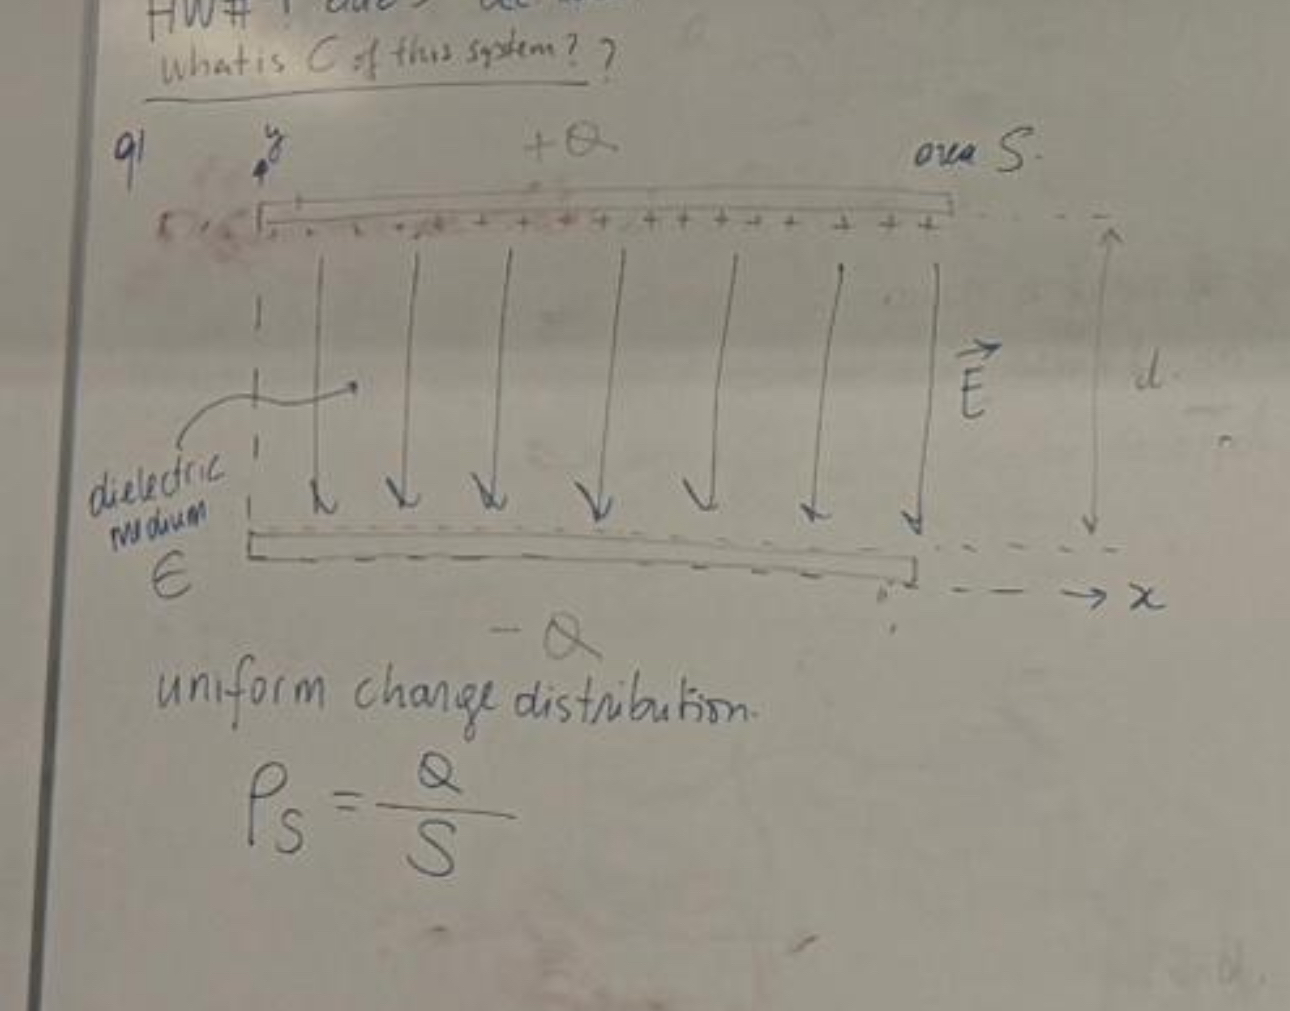 HW#
What is C of this system? ?
q1
y
+Q
area S.
+ + + + + + + + + + + +
E
d.
dielectric
medium
ϵ
x
- Q
uniform charge distribution.
ρs = Q
S